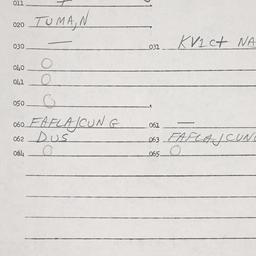 011
020 TUMA,N
030 — 031 KV1ct NA
040 O
041 O
050 O
060 FAFLAJCUNG 061 —
062 DUS 063 FAFLAJCUNG
064 O 065 O